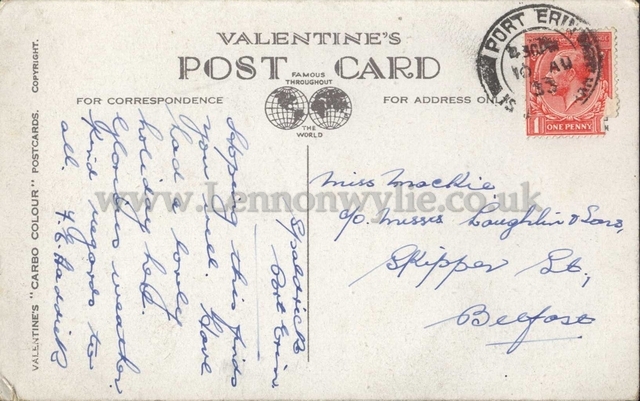 VALENTINE'S
POST CARD
FAMOUS
THROUGHOUT
THE
WORLD
FOR CORRESPONDENCE
FOR ADDRESS ONLY
VALENTINE'S "CARBO COLOUR" POSTCARDS. COPYRIGHT.
PORT ERIN
4 30 PM
10 AU
33
ONE PENNY
1
1
Spaldrick
Port Erin
Hoping this finds
you well. Have
had a lovely
holiday here.
Glorious weather.
Kind regards to
all.
Miss Mackie
c/o. Messrs Loughlin & Sons,
Skipper St.,
Belfast
www.Lennonwylie.co.uk